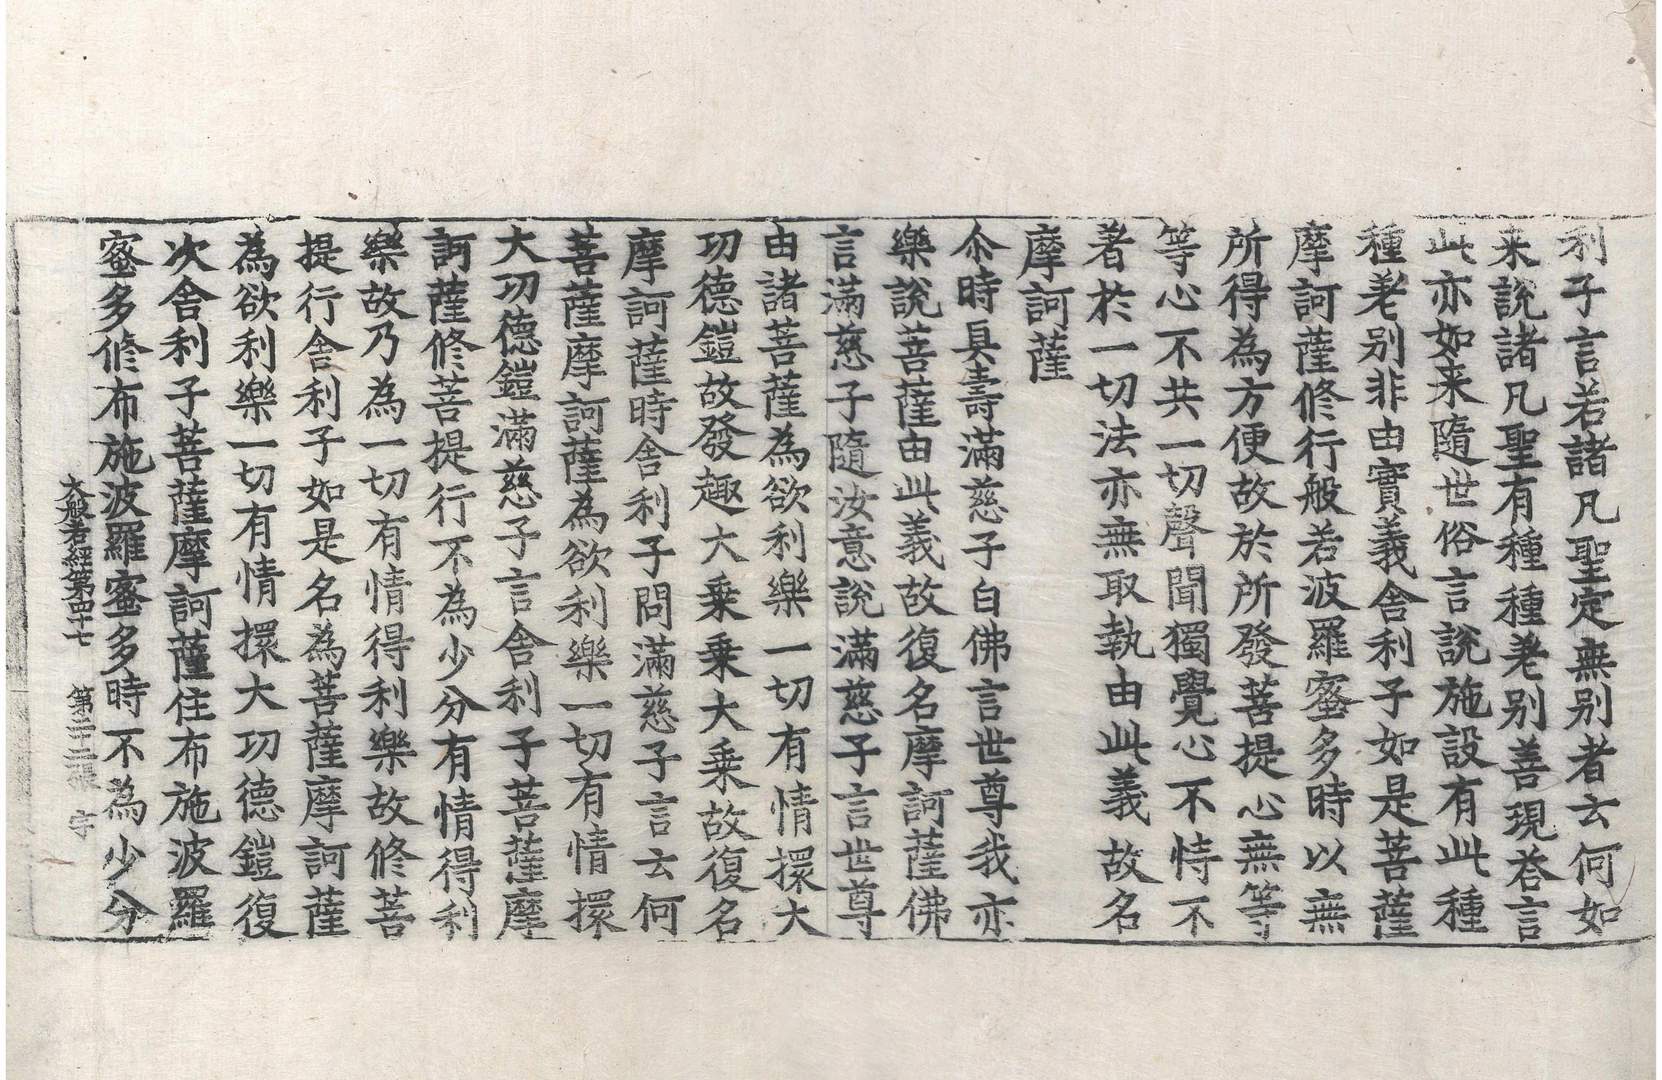 利子言若諸凡聖定無別者云何如
来說諸凡聖有種種差別善現荅言
此亦如来隨世俗言說施設有此種
種差別非由實義舍利子如是菩薩
摩訶薩修行般若波羅蜜多時以無
所得為方便故於所發菩提心無等
等心不共一切聲聞獨覺心不恃不
著於一切法亦無取執由此義故名
摩訶薩
尒時具壽滿慈子白佛言世尊我亦
樂說菩薩由此義故復名摩訶薩佛
言滿慈子隨汝意說滿慈子言世尊
由諸菩薩為欲利樂一切有情擐大
功德鎧故發趣大乘乘大乘故復名
摩訶薩時舍利子問滿慈子言云何
菩薩摩訶薩為欲利樂一切有情擐
大功德鎧滿慈子言舍利子菩薩摩
訶薩修菩提行不為少分有情得利
樂故乃為一切有情得利樂故修菩
提行舍利子如是名為菩薩摩訶薩
為欲利樂一切有情擐大功德鎧復
次舍利子菩薩摩訶薩住布施波羅
蜜多修布施波羅蜜多時不為少分
大般若經第四十七 第二十二張 宇